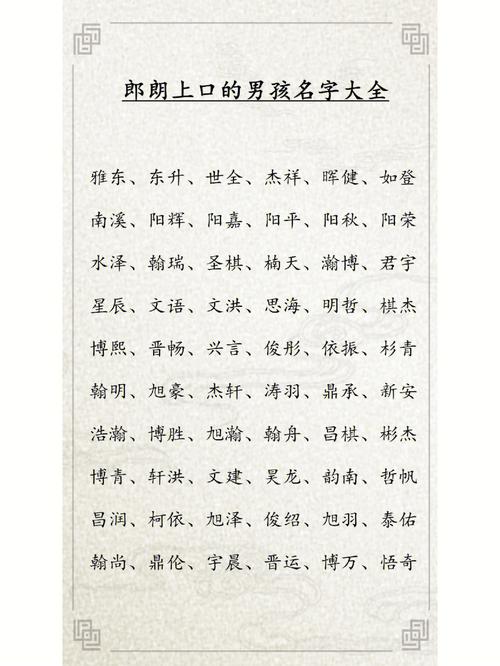 郎朗上口的男孩名字大全
雅东、东升、世全、杰祥、晖健、如登
南溪、阳辉、阳嘉、阳平、阳秋、阳荣
水泽、翰瑞、圣棋、楠天、瀚博、君宇
星辰、文语、文洪、思海、明哲、棋杰
博熙、晋畅、兴言、俊彤、依振、杉青
翰明、旭豪、杰轩、涛羽、鼎承、新安
浩瀚、博胜、旭瀚、翰舟、昌棋、彬杰
博青、轩洪、文建、昊龙、韵南、哲帆
昌润、柯依、旭泽、俊绍、旭羽、泰佑
翰尚、鼎伦、宇晨、晋运、博万、悟奇